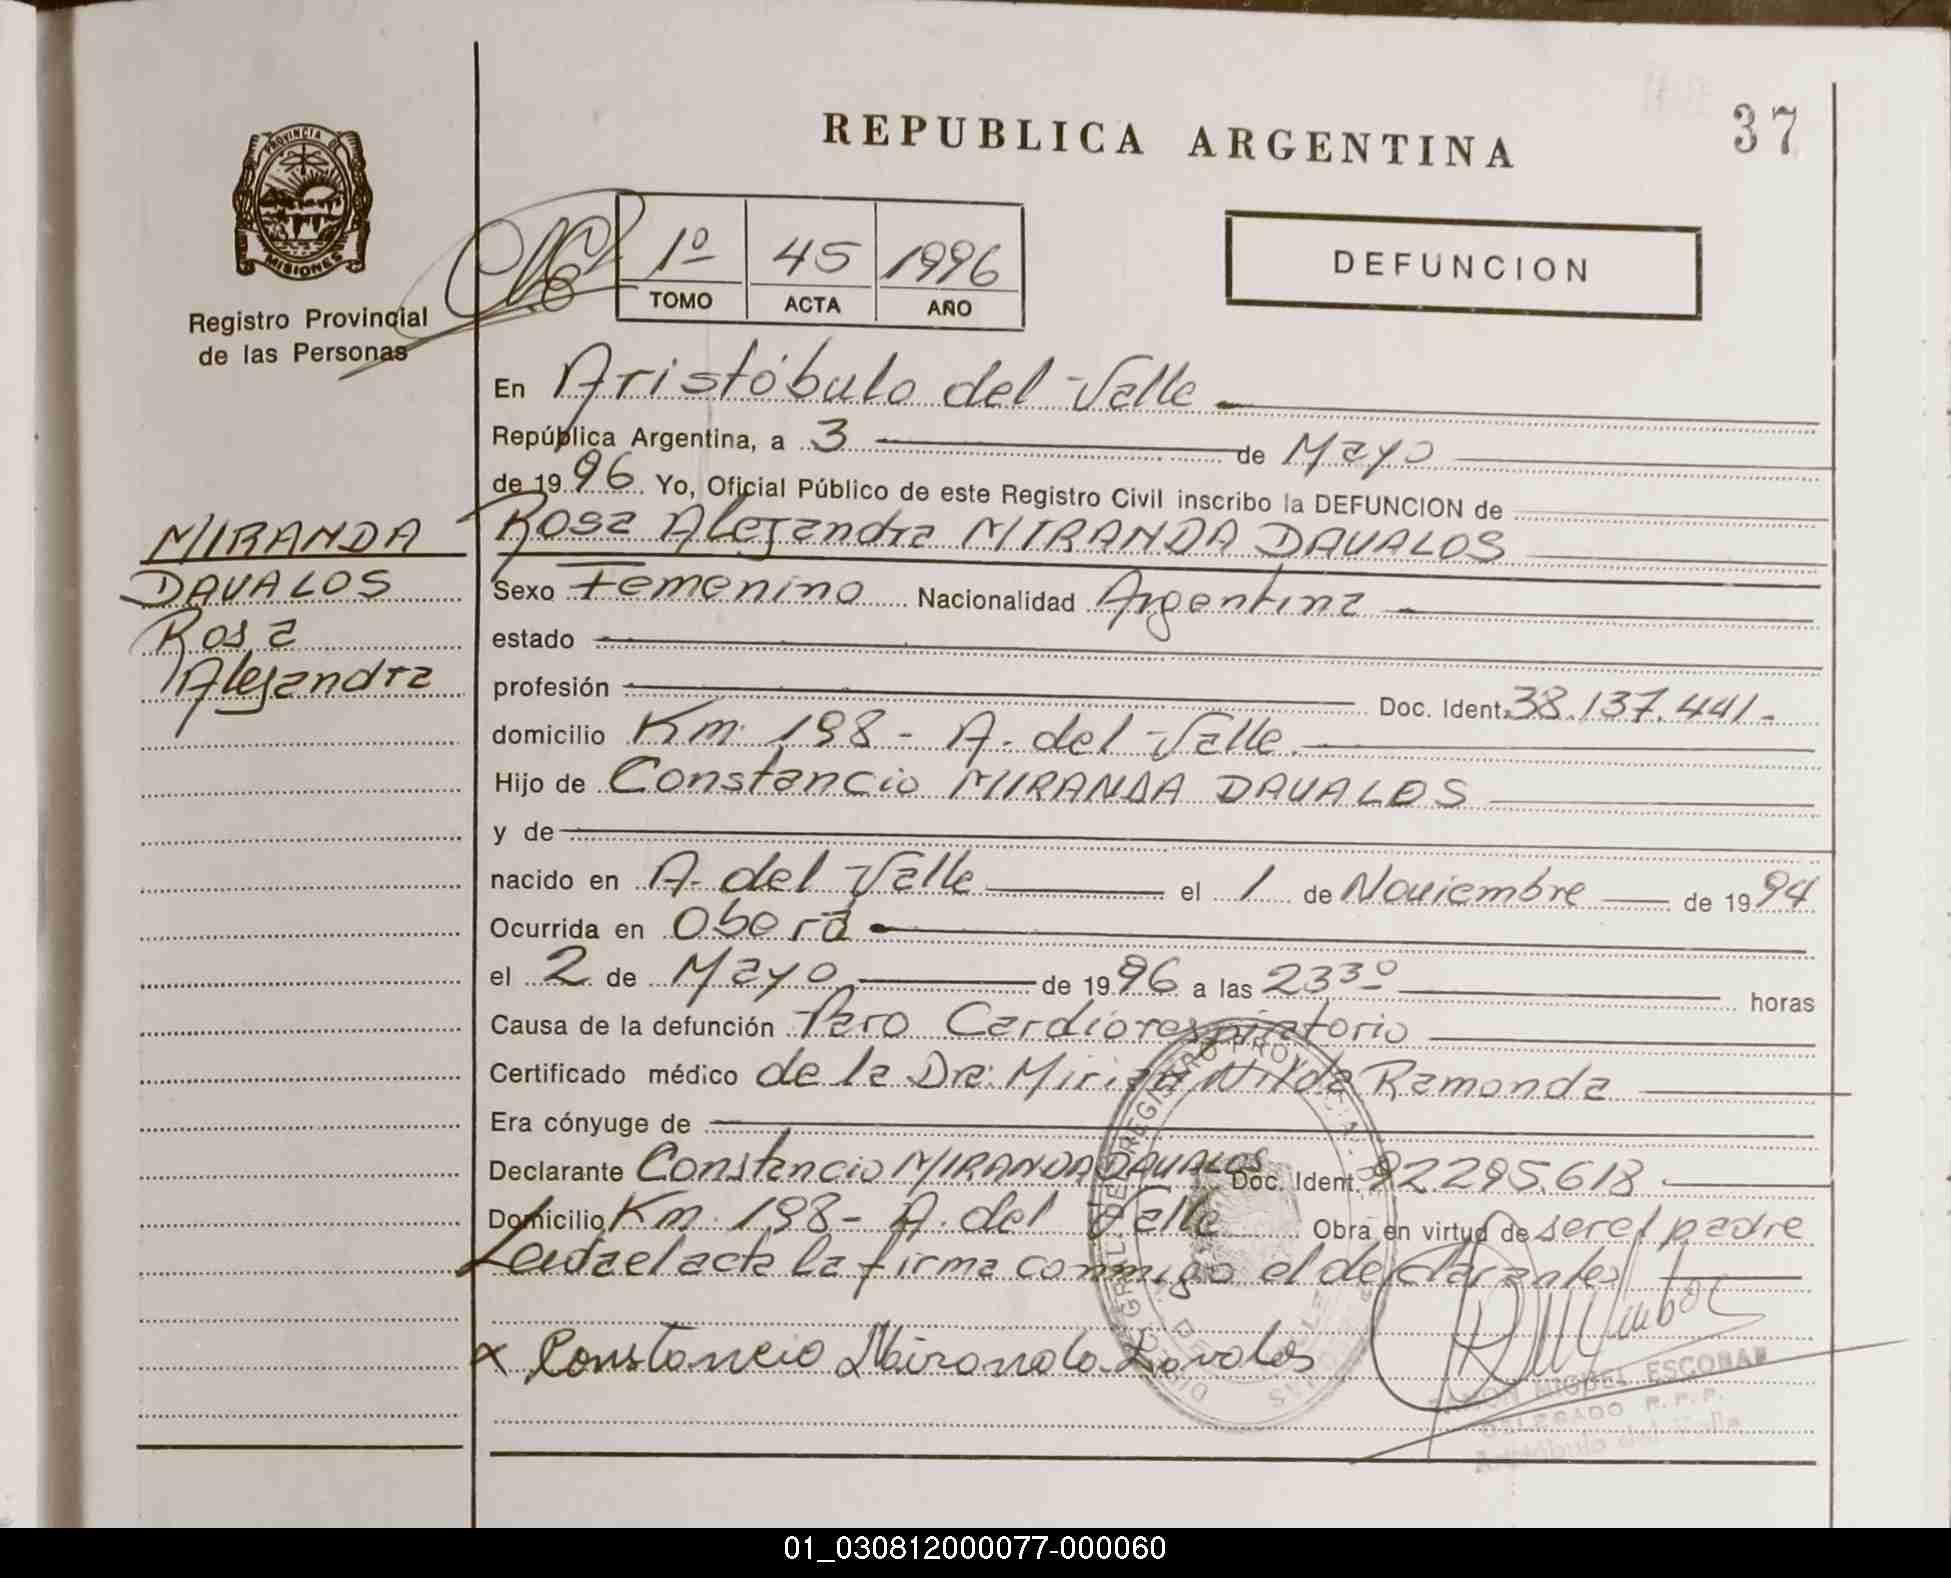 REPUBLICA ARGENTINA
37
PROVINCIA D
MISIONES
Registro Provincial
de las Personas
1º 45 1996
TOMO ACTA AÑO
DEFUNCION
En Aristóbulo del Valle
República Argentina, a 3 de Mayo
de 1996 Yo, Oficial Público de este Registro Civil inscribo la DEFUNCION de
MIRANDA
DAVALOS
Rosa
Alejandra
Rosa Alejandra MIRANDA DAVALOS
Sexo Femenino Nacionalidad Argentina
estado
profesión Doc. Ident. 38.137.441.-
domicilio Km. 198 - A. del Valle.
Hijo de Constancio MIRANDA DAVALOS
y de
nacido en A. del Valle el 1 de Noviembre de 1994
Ocurrida en Oberá
el 2 de Mayo de 1996 a las 23³⁰ horas
Causa de la defunción Paro Cardiorespiratorio
Certificado médico de la Dra. Mirian Nilda Ramonda
Era cónyuge de
Declarante Constancio MIRANDA DAVALOS Doc. Ident. 92.295.618
Domicilio Km. 198 - A. del Valle Obra en virtud de ser el padre
Leida el acta la firma conmigo el declarante
x Constancio Miranda Davalos
RAMON MIGUEL ESCOBAR
DELEGADO R.P.P.
Aristóbulo del Valle
01_030812000077-000060